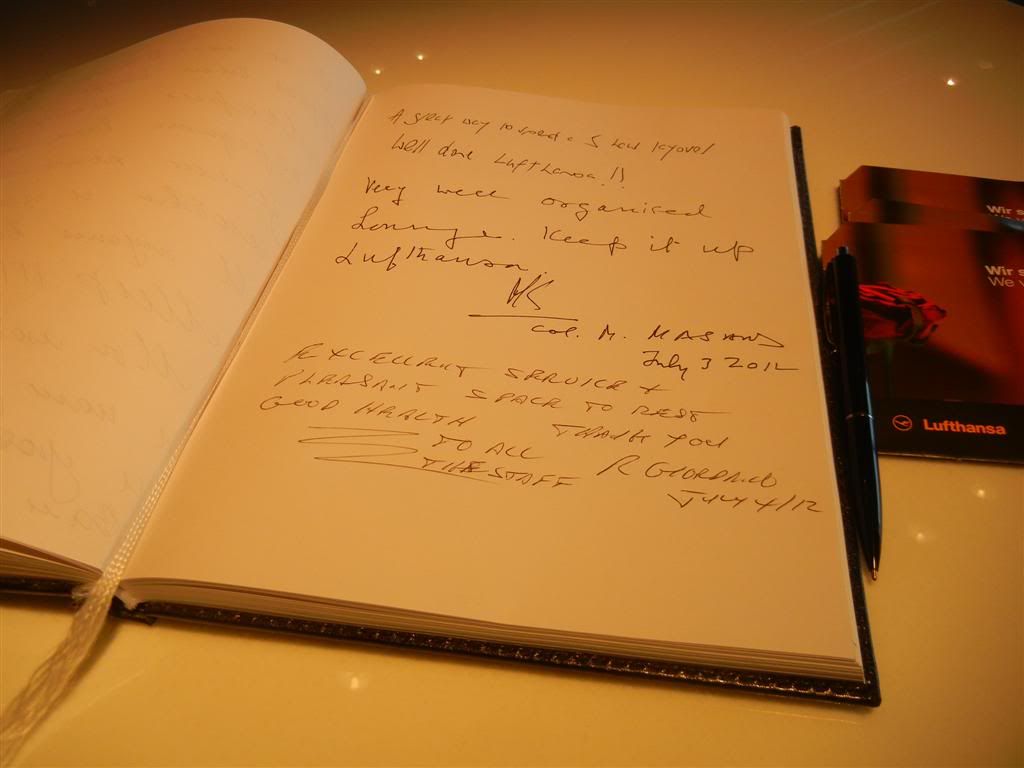 A great way to spend a 5 hour layover!
Well done Lufthansa!!
Very well organised
Lounge. Keep it up
Lufthansa.
Col. M.
July 3 2012
EXCELLENT SERVICE +
PLEASANT SPACE TO REST
GOOD HEALTH THANK YOU
TO ALL
THE STAFF R GIORDANO
JULY 4/12
Wir s
Wir s
We v
Lufthansa